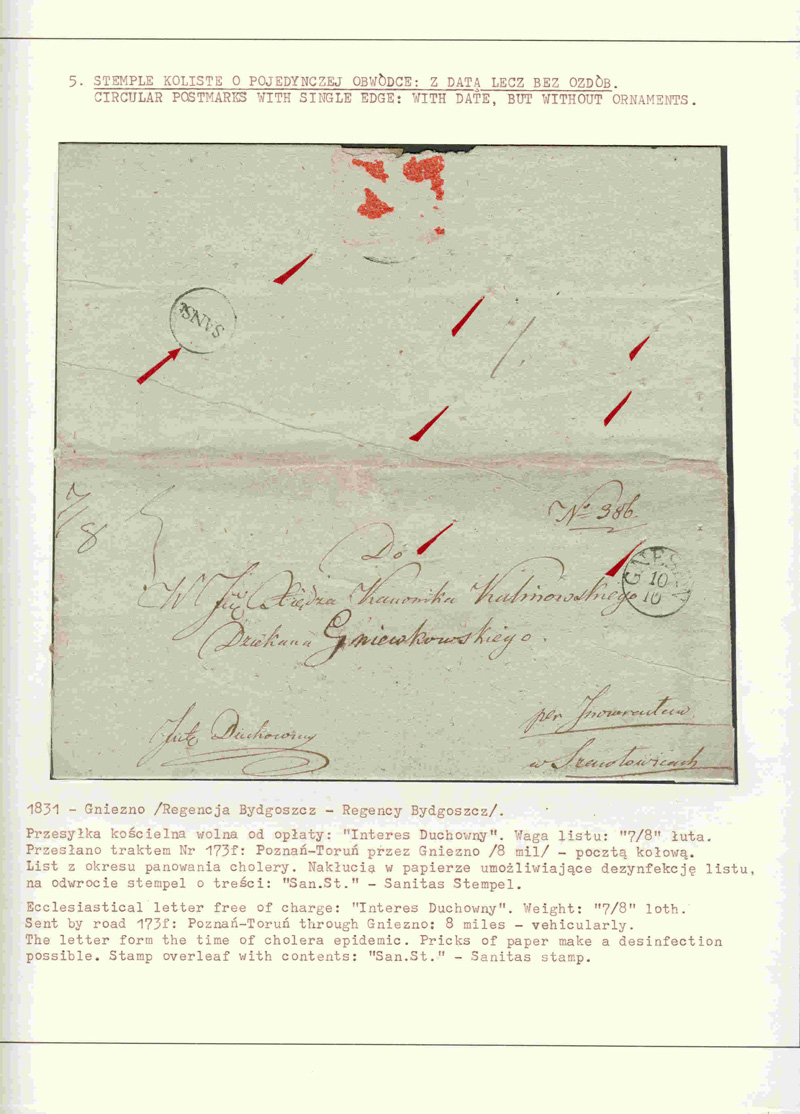 5. STEMPLE KOLISTE O POJEDYNCZEJ OBWÒDCE: Z DATĄ LECZ BEZ OZDÒB.
CIRCULAR POSTMARKS WITH SINGLE EDGE: WITH DATE, BUT WITHOUT ORNAMENTS.
SAN St.
7/8
No 386
Do
GNESEN
10
10
W Xiędza Kanonika Kalinowskiego
Dziekana Gniewkowskiego.
Duchowny
per Inowrocław
w Szadłowicach
1831 - Gniezno /Regencja Bydgoszcz - Regency Bydgoszcz/.
Przesyłka kościelna wolna od opłaty: "Interes Duchowny". Waga listu: "7/8" łuta.
Przesłano traktem Nr 173f: Poznań-Toruń przez Gniezno /8 mil/ - pocztą kołową.
List z okresu panowania cholery. Nakłucia w papierze umożliwiające dezynfekcję listu,
na odwrocie stempel o treści: "San.St." - Sanitas Stempel.
Ecclesiastical letter free of charge: "Interes Duchowny". Weight: "7/8" loth.
Sent by road 173f: Poznań-Toruń through Gniezno: 8 miles - vehicularly.
The letter form the time of cholera epidemic. Pricks of paper make a desinfection
possible. Stamp overleaf with contents: "San.St." - Sanitas stamp.